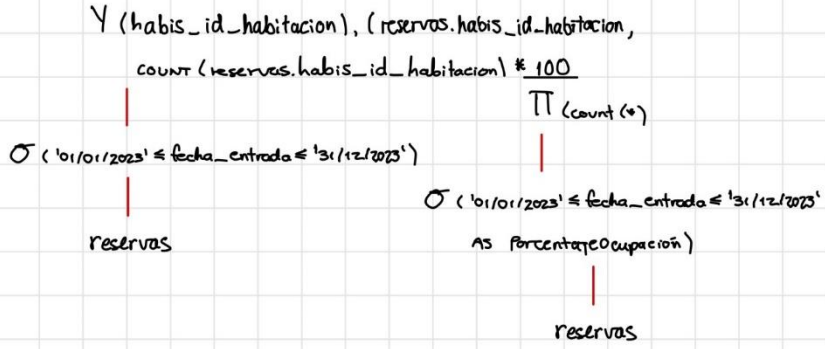 γ (habis_id_habitacion), (reservas.habis_id_habitacion,
COUNT (reservas.habis_id_habitacion) * 100
π (count(*)
σ ('01/01/2023' ≤ fecha_entrada ≤ '31/12/2023')
σ ('01/01/2023' ≤ fecha_entrada ≤ '31/12/2023'
reservas
AS PorcentajeOcupación)
reservas